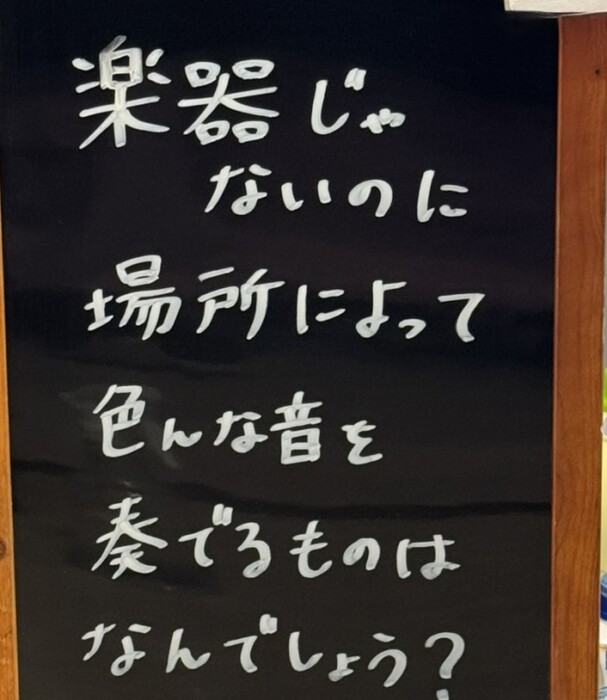 楽器じゃ
ないのに
場所によって
色んな音を
奏でるものは
なんでしょう?